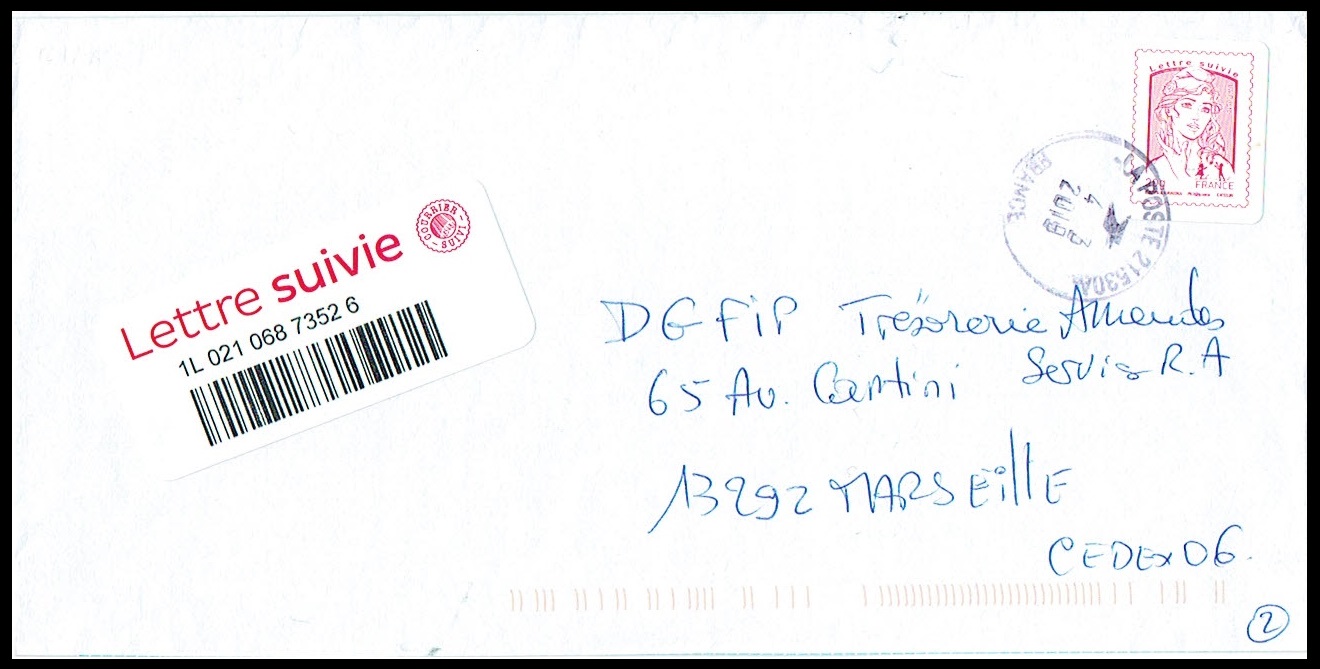 Lettre suivie
20g FRANCE
LA POSTE 21530A
FRANCE
4
2018
Lettre suivie
COURRIER SUIVI
1L 021 068 7352 6
DGFiP Trésorerie Amendes
65 Av. Cantini Service R.A
13292 MARSEillE
CEDEX 06.
2